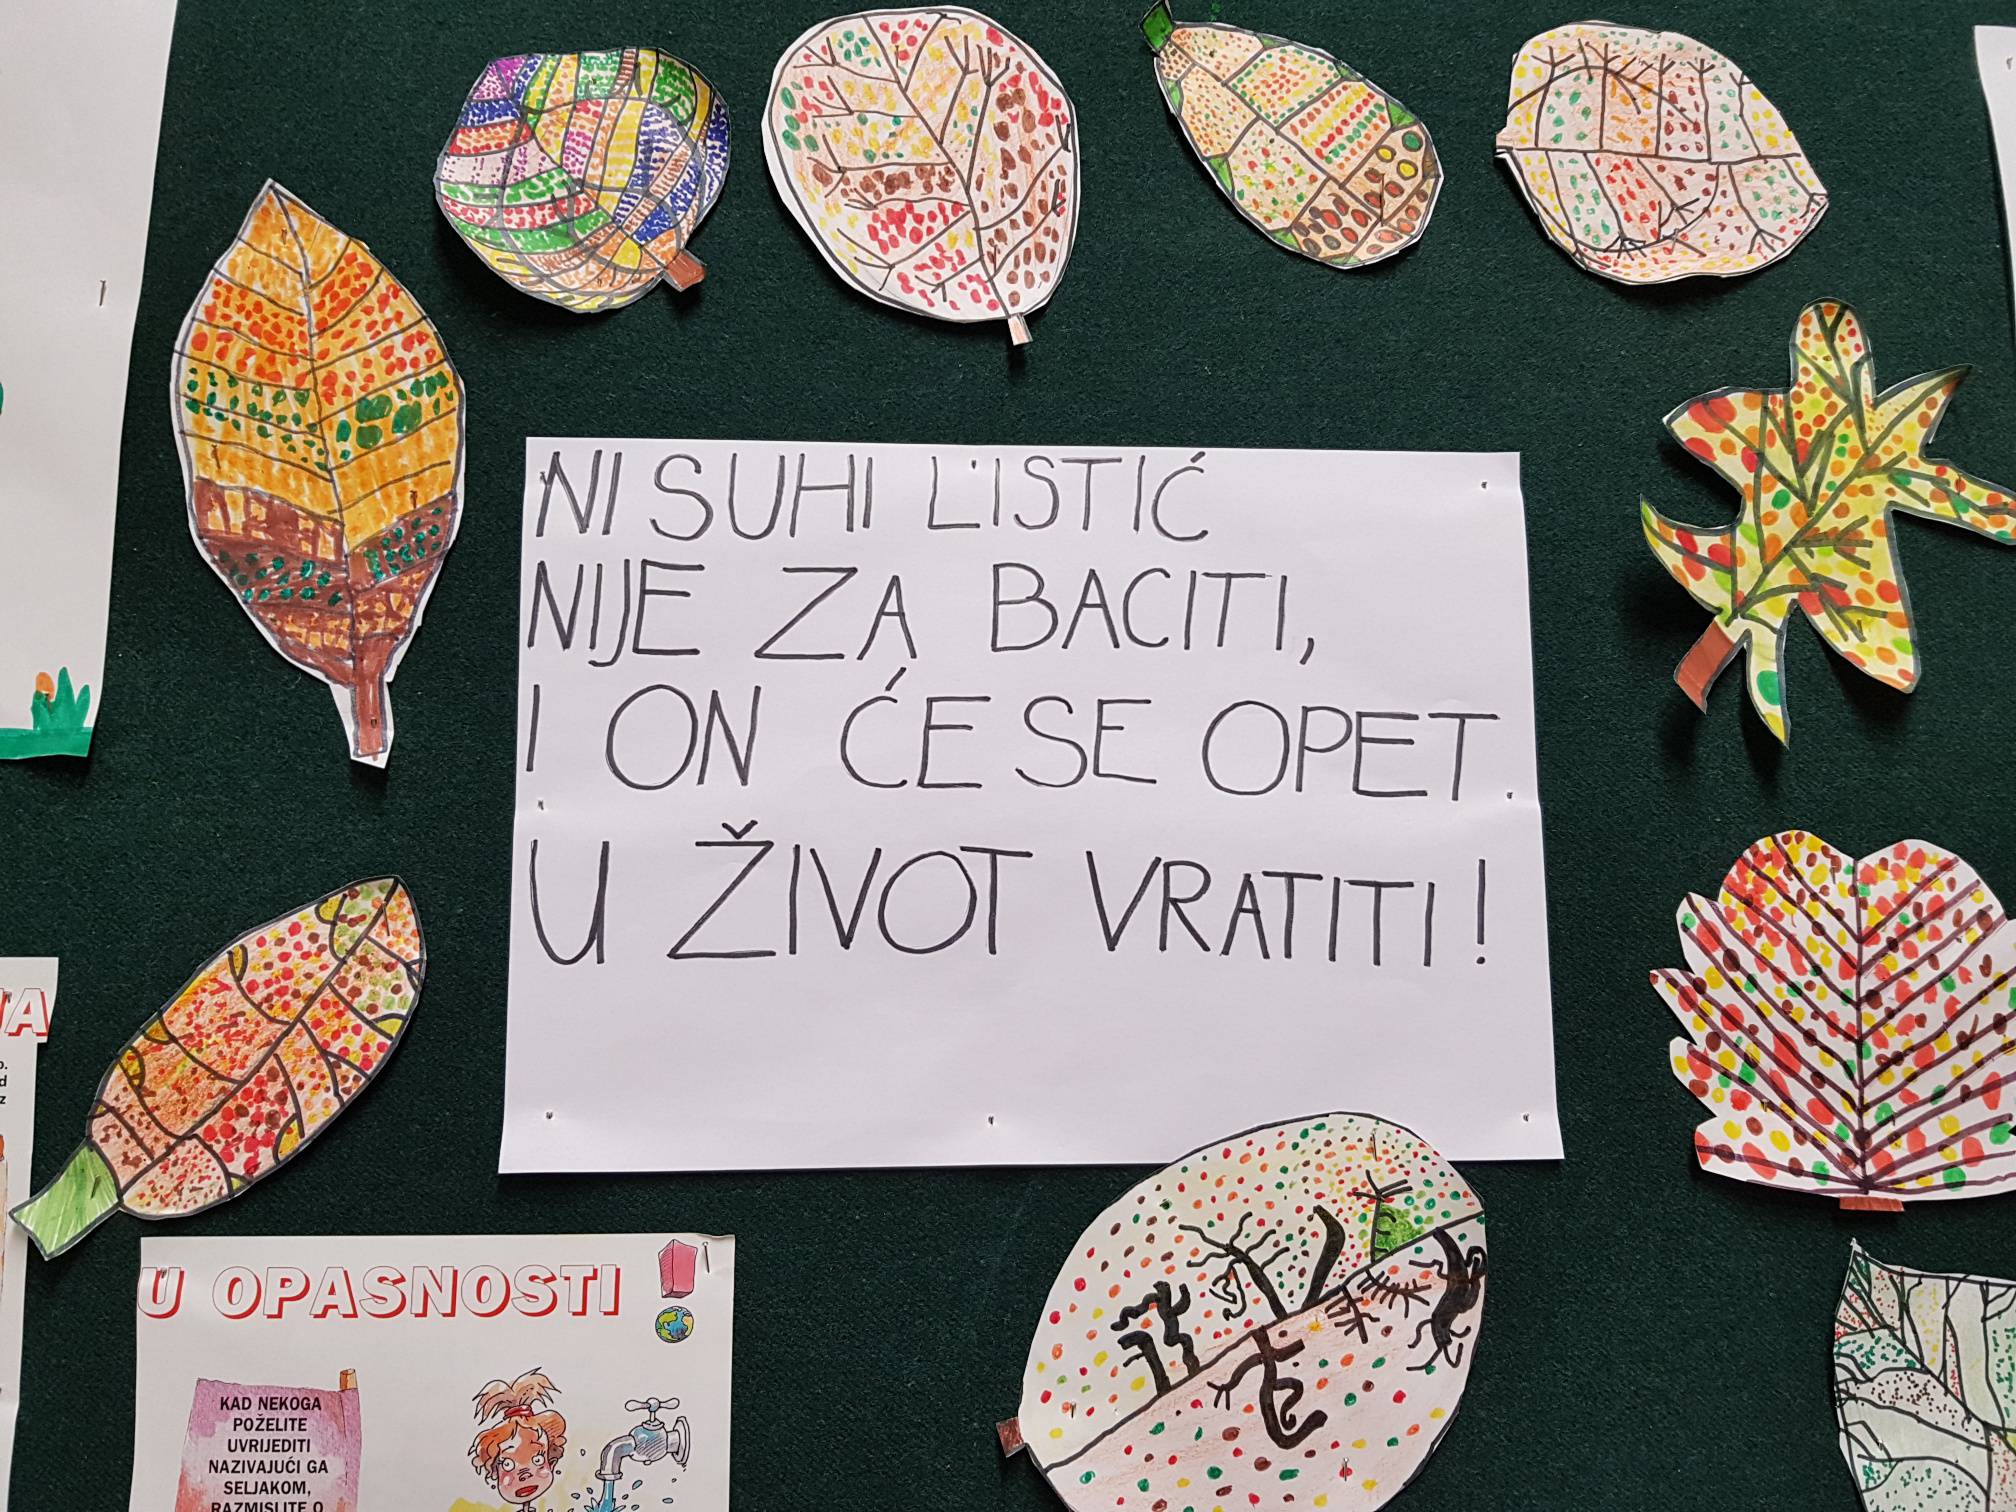 NI SUHI LISTIĆ
NIJE ZA BACITI,
I ON ĆE SE OPET
U ŽIVOT VRATITI!
U OPASNOSTI
KAD NEKOGA
POŽELITE
UVRIJEDITI
NAZIVAJUĆI GA
SELJAKOM,
RAZMISLITE O